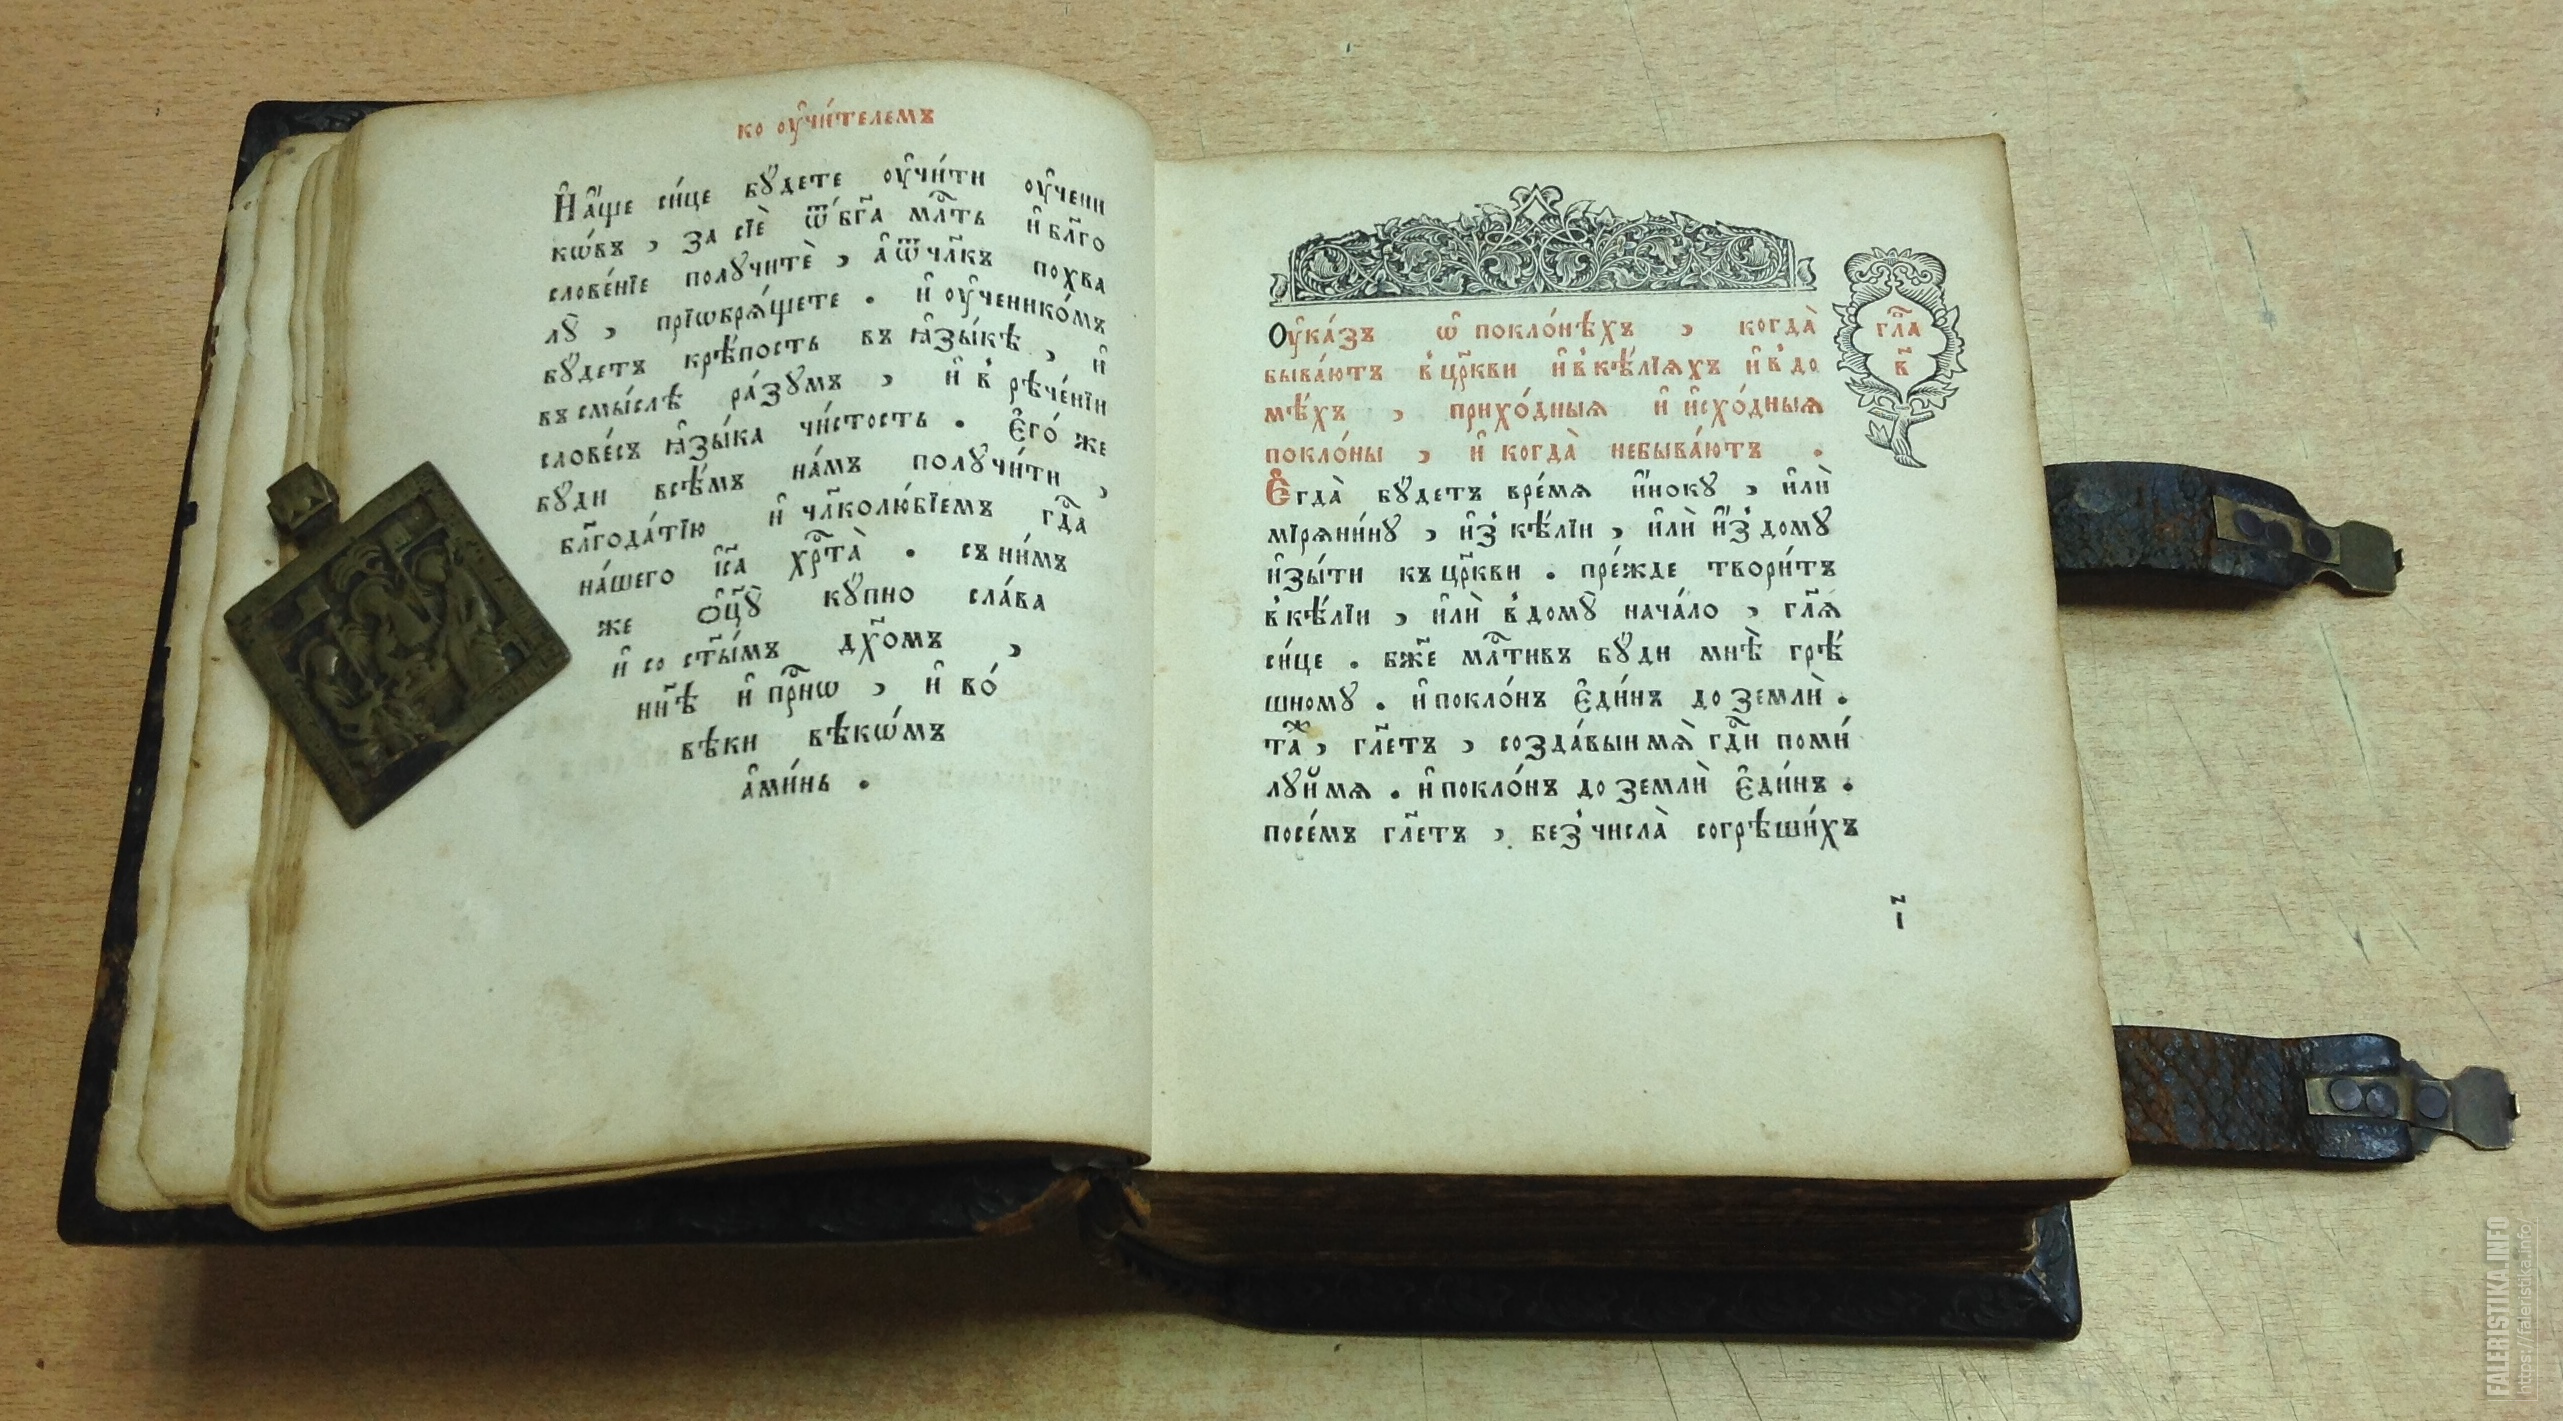 ко ᲂу҆чи́телемъ
И҆ а҆́ще си́це бꙋ́дете ᲂу҆чи́ти ᲂу҆чени
кѡ́въ , за сїѐ ѿ бг҃а млⷭ҇ть и҆ блг҃о
слове́нїе полꙋчитѐ , а҆ ѿ чл҃къ похва
лꙋ̀ , прїѡбрѧ́щете . и҆ ᲂу҆ченико́мъ
бꙋ́детъ крѣ́пость въ ꙗ҆зы́кѣ , и҆
въ смы́слѣ ра́зꙋмъ , и҆ в рѣче́нїи
слове́съ ꙗ҆зы́ка чи́стость . Е҆го́ же
бꙋ́ди всѣ́мъ на́мъ полꙋчи́ти ,
блг҃ода́тїю и҆ чл҃колю́бїемъ гдⷭ҇а
на́шего і҆с҃а хрⷭ҇та̀ . съ ни́мъ
же ѻ҆ц҃ꙋ̀ кꙋ́пно сла́ва
и҆ со ст҃ы́мъ дх҃омъ ,
нн҃ѣ и҆ прⷭ҇нѡ , и҆ во́
вѣки вѣкѡ́мъ
а҆ми́нь .
Оу҆ка́зъ ѡ҆ покло́нѣхъ , когда̀
быва́ютъ в цр҃кви и҆ в кѣ́лїѧхъ и҆ в до
мѣ́хъ , прихо́дныѧ и҆ и҆схо́дныѧ
покло́ны , и҆ когда̀ небыва́ютъ .
глⷡ҇а
в҃
Е҆гда̀ бꙋ́детъ вре́мѧ и҆́нокꙋ , и҆лѝ
мірѧни́нꙋ , и҆з кѣ́лїи , и҆лѝ и҆з домꙋ
и҆зы́ти къ цр҃кви . пре́жде твори́тъ
в кѣ́лїи , и҆лѝ в домꙋ̀ нача́ло , гл҃ѧ
си́це . бж҃е млⷭ҇тивъ бꙋ́ди мнѣ̀ грѣ́
шномꙋ . и҆ покло́нъ є҆ди́нъ до землѝ .
таⷤ , гл҃етъ , созда́выи мѧ̀ гдⷭ҇и поми́
лꙋй мѧ . и҆ покло́нъ до землѝ є҆ди́нъ .
посе́мъ гл҃етъ , без числа̀ согрѣши́хъ
і҃
FALERISTIKA.INFO
https://faleristika.info